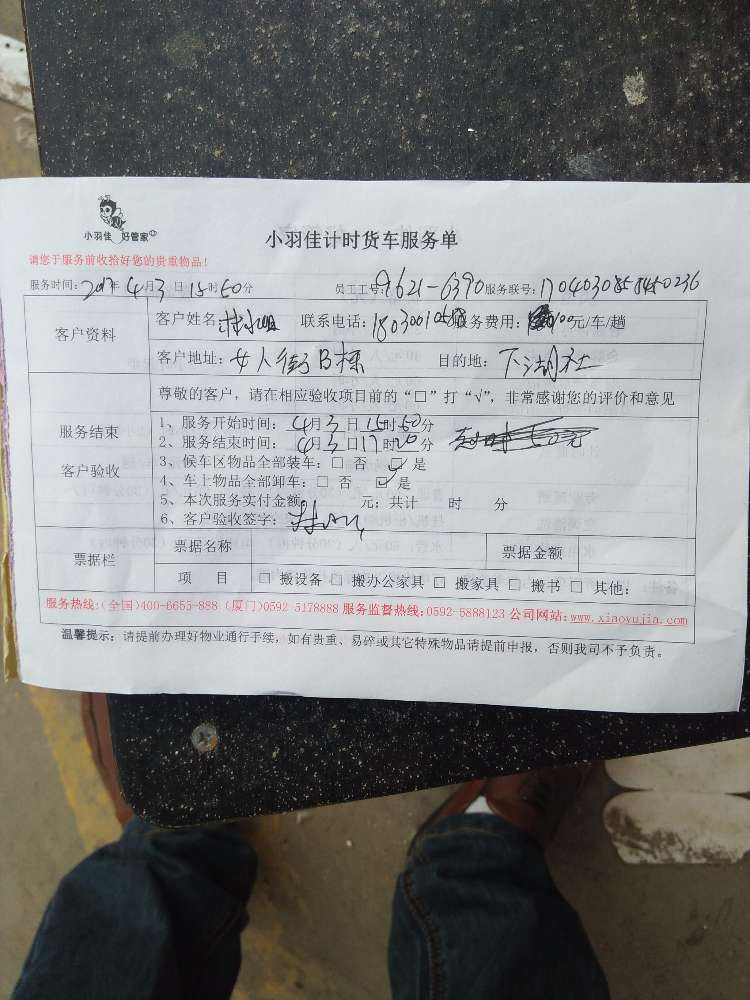 小羽佳 好管家
小羽佳计时货车服务单
请您于服务前收拾好您的贵重物品！
服务时间：2017年4月3日15时50分 员工工号：9621-6390 服务联号：
客户资料
客户姓名： 联系电话： 服务费用： 元/车/趟
客户地址：女人街B栋 目的地：下湖社
服务结束
客户验收
尊敬的客户，请在相应验收项目前的“□”打“√”，非常感谢您的评价和意见
1、服务开始时间：4月3日15时50分
2、服务结束时间：4月3日17时20分
3、候车区物品全部装车：□ 否 ☑ 是
4、车上物品全部卸车：□ 否 ☑ 是
5、本次服务实付金额 元：共计 时 分
6、客户验收签字：
票据栏
票据名称 票据金额
项 目 □ 搬设备 □ 搬办公家具 □ 搬家具 □ 搬书 □ 其他：
服务热线：(全国)400-6655-888 (厦门)0592 5178888 服务监督热线：0592-5888123 公司网站：www.xiaoyujia.com
温馨提示：请提前办理好物业通行手续，如有贵重、易碎或其它特殊物品请提前申报，否则我司不予负责。